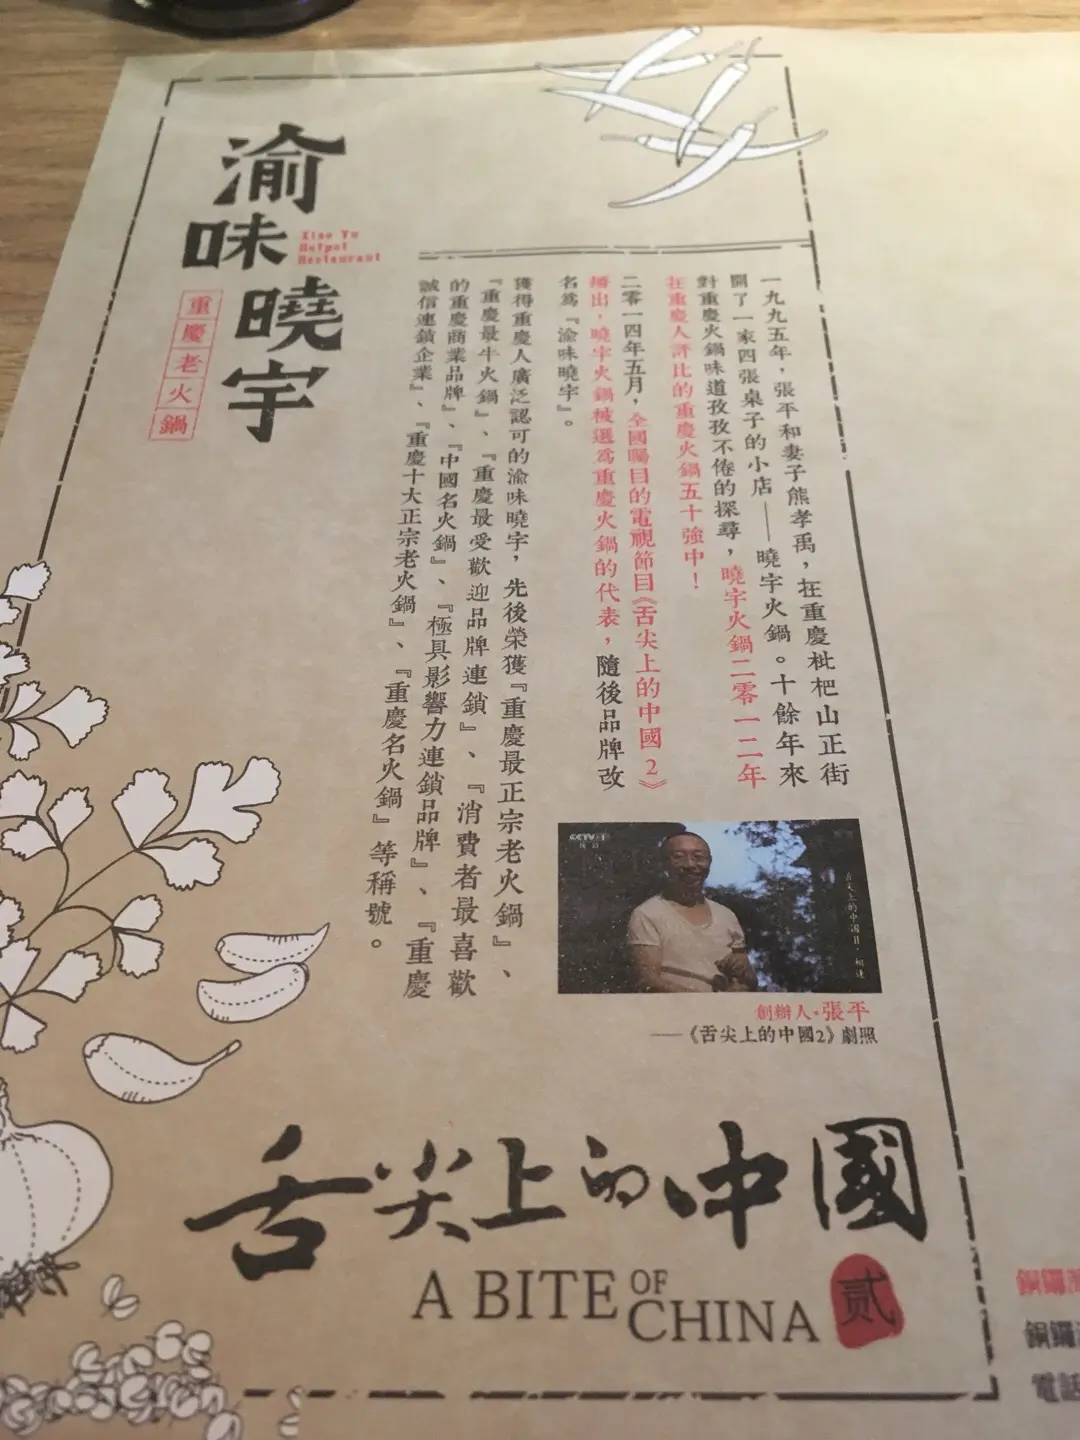 渝味曉宇
Xiao Yu
Hotpot
Restaurant
重慶老火鍋
一九九五年，張平和妻子熊孝禹，在重慶枇杷山正街
開了一家四張桌子的小店——曉宇火鍋。十餘年來
對重慶火鍋味道孜孜不倦的探尋，曉宇火鍋二零一二年
在重慶人評比的重慶火鍋五十強中！
二零一四年五月，全國矚目的電視節目《舌尖上的中國2》
播出，曉宇火鍋被選爲重慶火鍋的代表，隨後品牌改
名爲『渝味曉宇』。
獲得重慶人廣泛認可的渝味曉宇，先後榮獲『重慶最正宗老火鍋』、
『重慶最牛火鍋』、『重慶最受歡迎品牌連鎖』、『消費者最喜歡
的重慶商業品牌』、『中國名火鍋』、『極具影響力連鎖品牌』、『重慶
誠信連鎖企業』、『重慶十大正宗老火鍋』、『重慶名火鍋』等稱號。
CCTV-1
舌尖上的中國Ⅱ·相逢
創辦人·張平
——《舌尖上的中國2》劇照
舌尖上的中國
A BITE OF CHINA
贰
銅鑼
銅鑼
電話